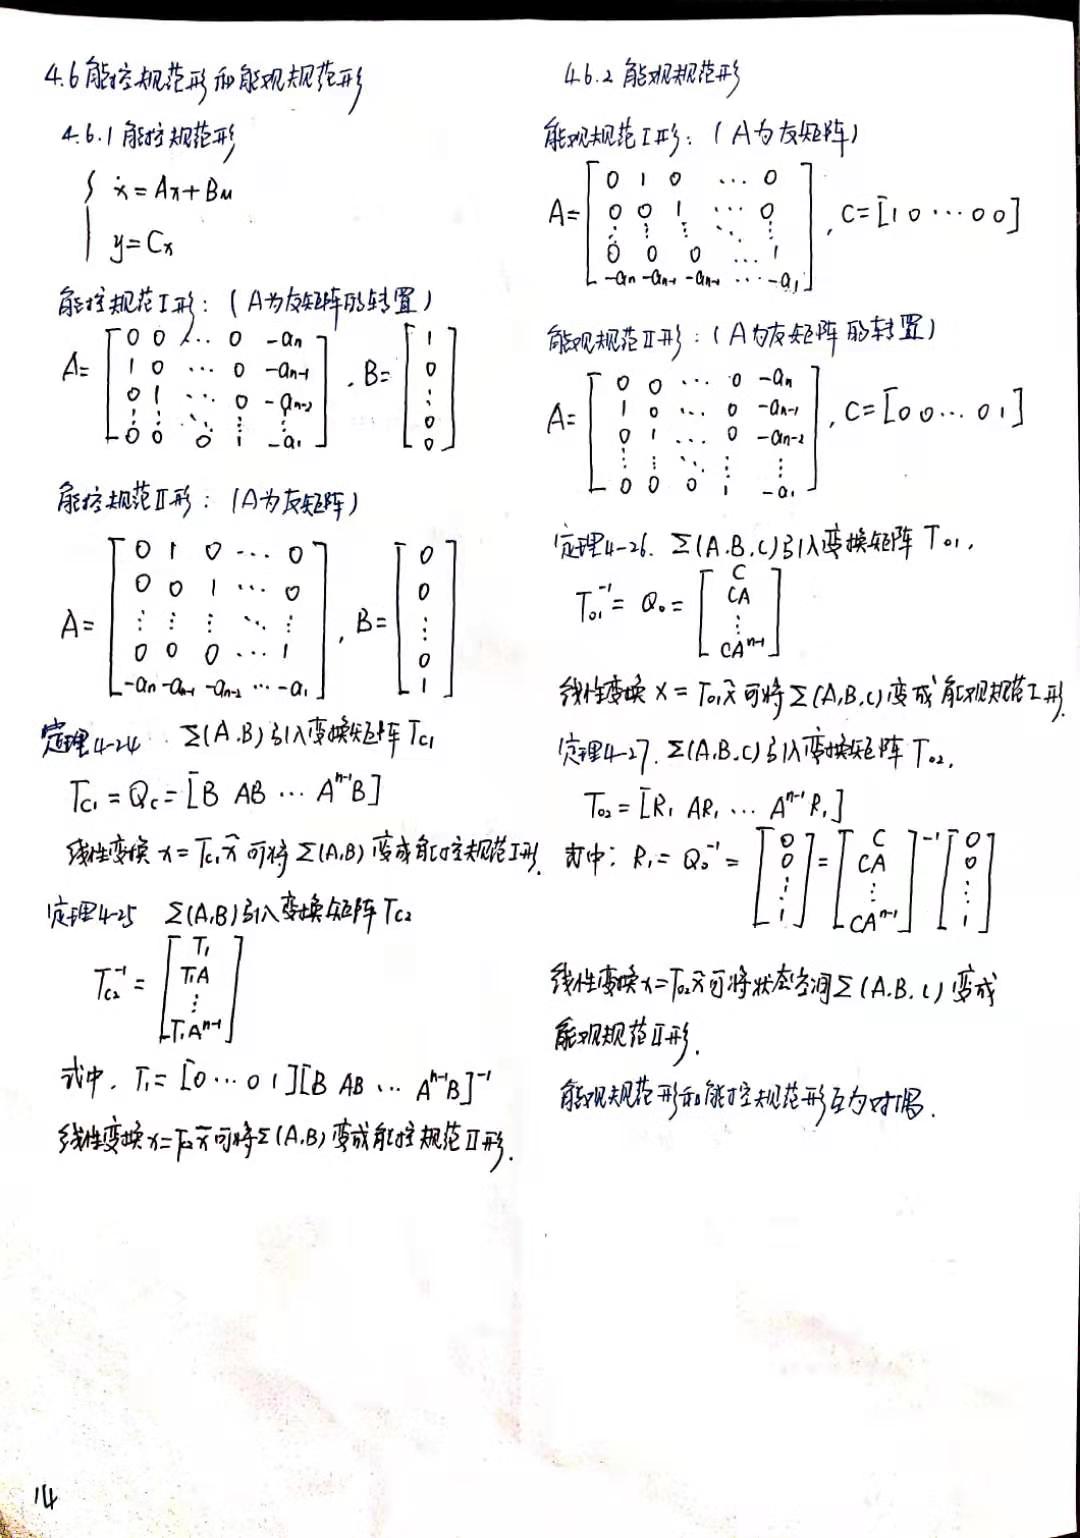 4.6 能控规范形和能观规范形
4.6.1 能控规范形
{ ẋ = Ax + Bu
y = Cx
能控规范I形：（A为友矩阵的转置）
A = [ 0 0 ... 0 -an
1 0 ... 0 -an-1
0 1 ... 0 -an-2
⋮ ⋮ ⋱ ⋮ ⋮
0 0 0 1 -a1 ] , B = [ 1 0 ⋮ 0 0 ]
能控规范II形：（A为友矩阵）
A = [ 0 1 0 ... 0
0 0 1 ... 0
⋮ ⋮ ⋮ ⋱ ⋮
0 0 0 ... 1
-an -an-1 -an-2 ... -a1 ] , B = [ 0 0 ⋮ 0 1 ]
定理4-24. Σ(A.B)引入变换矩阵 Tc1
Tc1 = Qc = [B AB ... A^(n-1)B]
线性变换 x = Tc1x̄ 可将Σ(A,B)变成能控规范I形.
定理4-25 Σ(A,B)引入变换矩阵 Tc2
Tc2^-1 = [ T1
T1A
⋮
T1A^(n-1) ]
式中, T1 = [0 ... 0 1][B AB ... A^(n-1)B]^-1
线性变换 x = Tc2x̄ 可将Σ(A,B)变成能控规范II形.
4.6.2 能观规范形
能观规范I形：（A为友矩阵）
A = [ 0 1 0 ... 0
0 0 1 ... 0
⋮ ⋮ ⋮ ⋱ ⋮
0 0 0 ... 1
-an -an-1 -an-1 ... -a1 ] , C = [1 0 ... 0 0]
能观规范II形：（A为友矩阵的转置）
A = [ 0 0 ... 0 -an
1 0 ... 0 -an-1
0 1 ... 0 -an-2
⋮ ⋮ ⋱ ⋮ ⋮
0 0 0 1 -a1 ] , C = [0 0 ... 0 1]
定理4-26. Σ(A.B.C)引入变换矩阵 To1,
To1^-1 = Qo = [ C
CA
⋮
CA^(n-1) ]
线性变换 x = To1x̃ 可将Σ(A,B,C)变成能观规范I形.
定理4-27. Σ(A.B.C)引入变换矩阵 To2,
To2 = [R1 AR1 ... A^(n-1)R1]
式中: R1 = Qo^-1 = [ 0 0 ⋮ 1 ] = [ C CA ⋮ CA^(n-1) ]^-1 [ 0 0 ⋮ 1 ]
线性变换 x = To2x̃ 可将状态空间Σ(A.B.C)变成
能观规范II形.
能观规范形和能控规范形互为对偶.
14